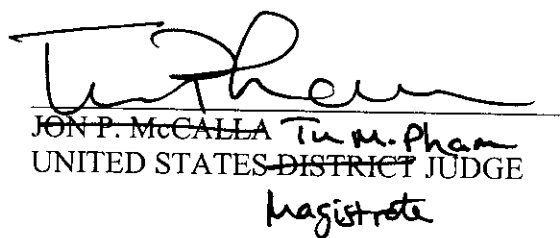 Tu Pham
JON P. McCALLA Tu M. Pham
UNITED STATES DISTRICT JUDGE
Magistrate